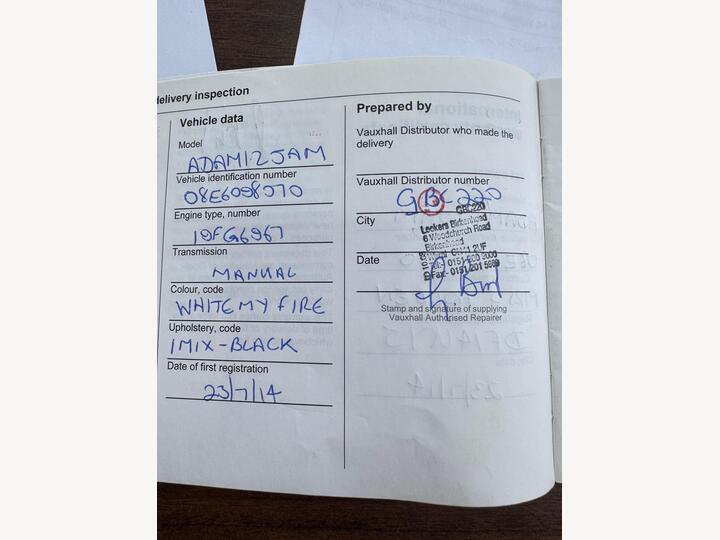 delivery inspection
Vehicle data
Model
ADAM 1.2 JAM
Vehicle identification number
08E6098070
Engine type, number
19FG6967
Transmission
MANUAL
Colour, code
WHITE MY FIRE
Upholstery, code
1MIX-BLACK
Date of first registration
23/7/14
Prepared by
Vauxhall Distributor who made the
delivery
Vauxhall Distributor number
GBC 220
GBC220
City
Lookers Birkenhead
6 Woodchurch Road
Birkenhead
Wirral
2UF
Date
Tel: 0151
Fax: 0151 201
Stamp and signature of supplying
Vauxhall Authorised Repairer